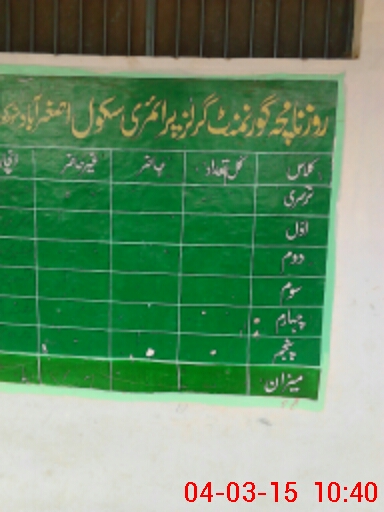 روزنامچہ گورنمنٹ گرلز پرائمری سکول اصغر آباد
کلاس کل تعداد حاضر غیر حاضر
نرسری
اول
دوم
سوم
چہارم
پنجم
میزان
04-03-15 10:40